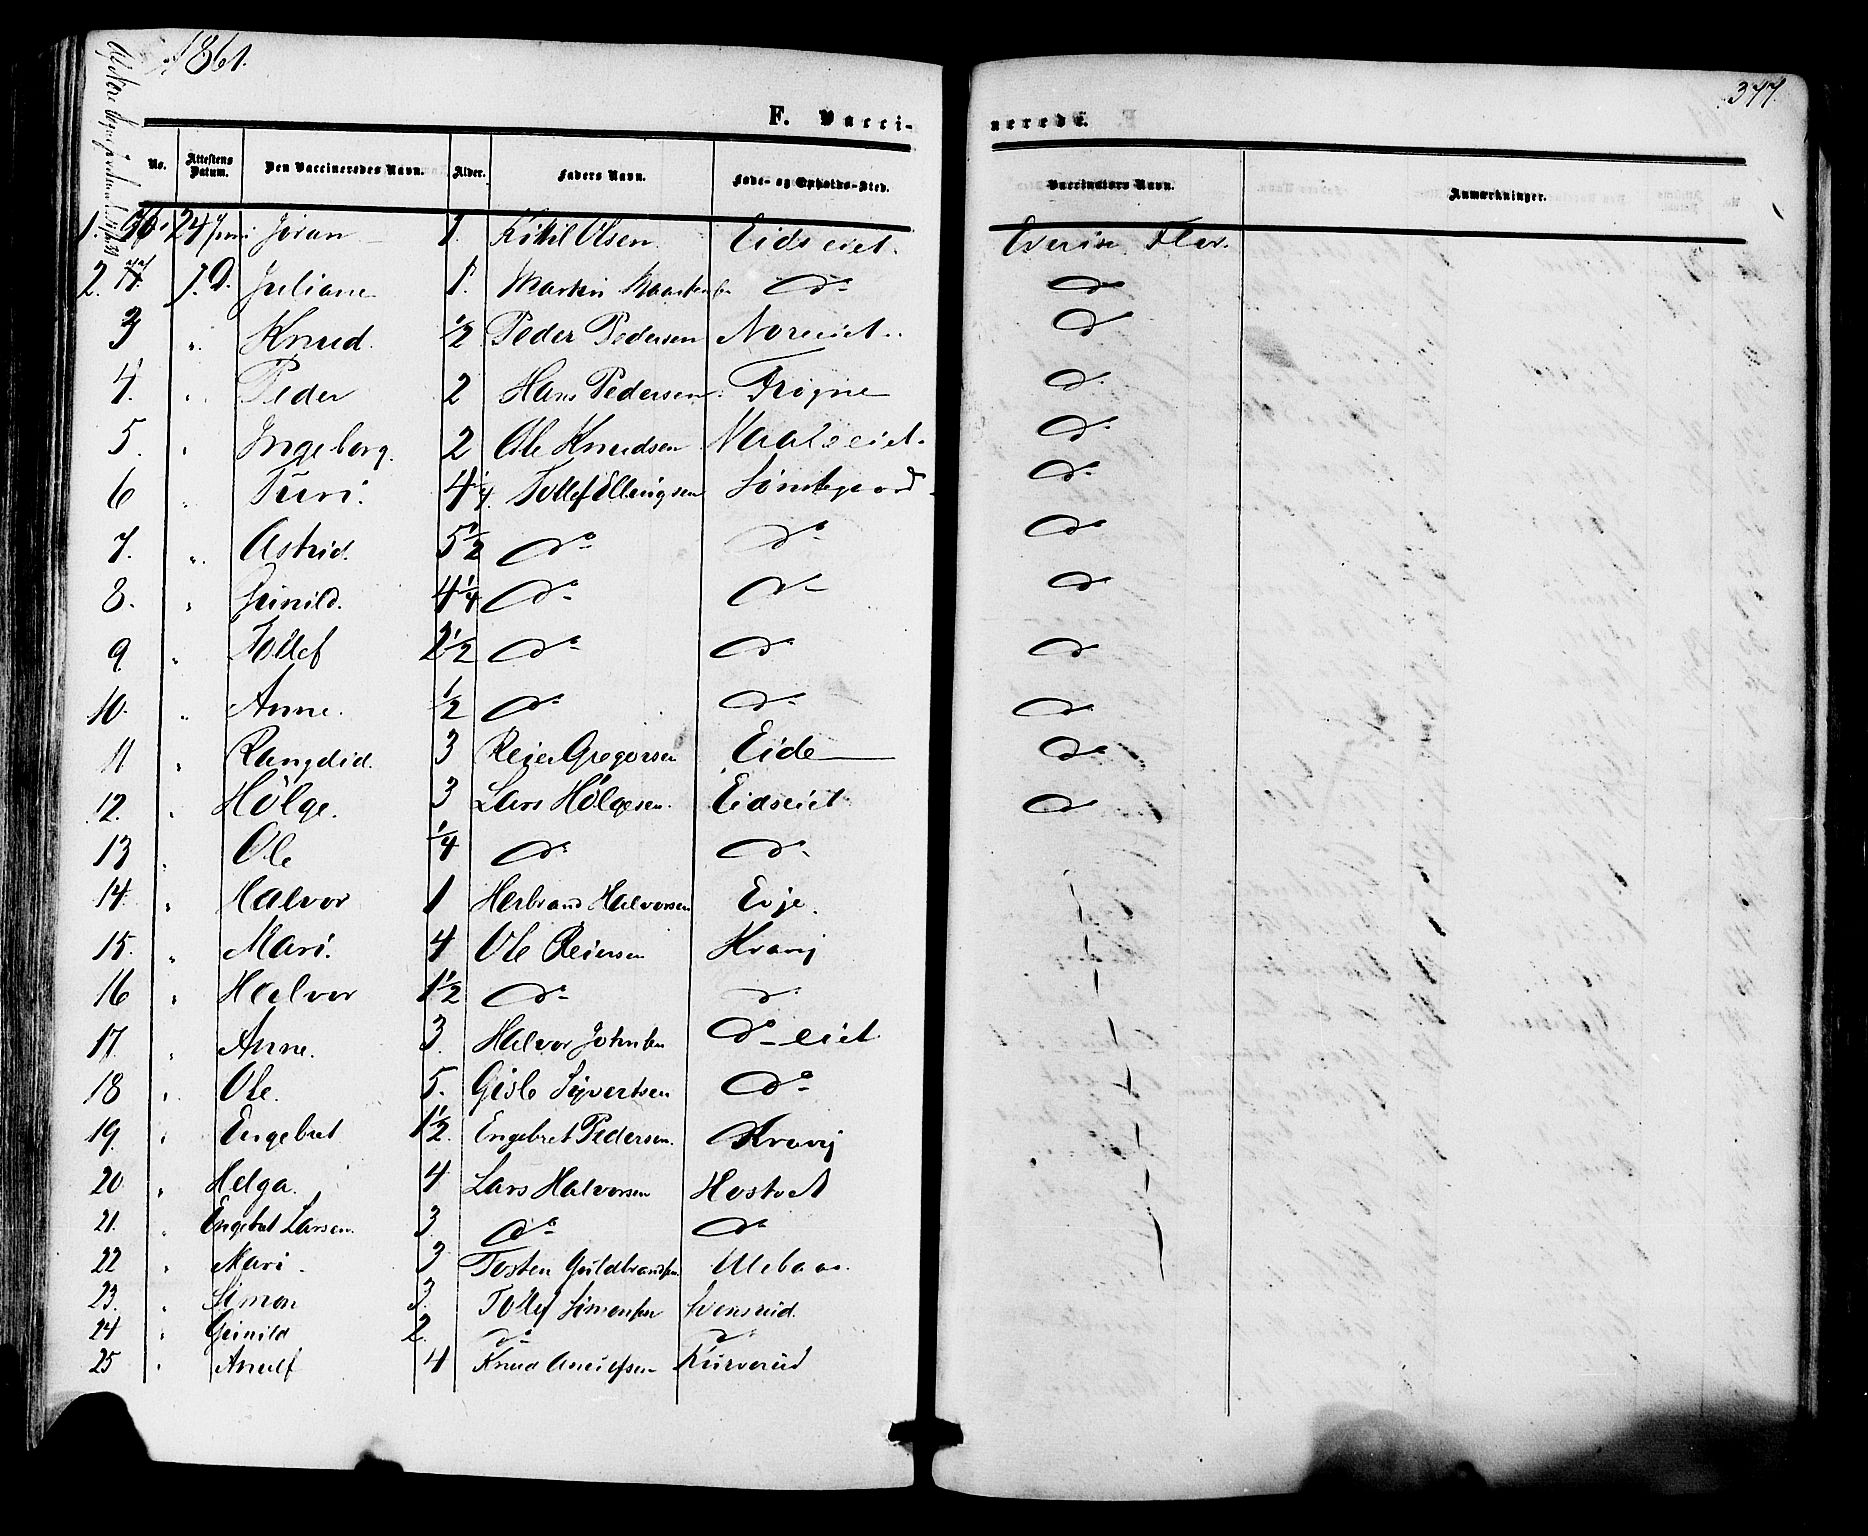 1861.
377.
F. Vacci-
nerede.
No. Attestens Datum. Den Vaccineredes Navn. Alder. Faders Navn. Føde- og Opholds-Sted. Vaccinators Navn. Anmærkninger.
1. 24 Juni Jøran 1. Kittil Olsen Eidseiet. Flor.
2. J. D. Juliane 1. Martin do do
3 " Knud. 1/2 Peder Pedersen Noreeiet. do
4. " Peder 2 Hans Pedersen Frogne do
5. " Ingeborg. 2 Ole Knudsen do
6 " Turi. 4 1/4. Tollef Ellingsen do
7. " Astrid. 5 1/2 do do do
8. " Gunild. 4 1/4 do do do
9 " Tollef 2 1/2 do do do
10. " Anne. 1/2 do do do
11 " Rangdid. 3 Reier Gregersen Eide do
12. " Hølge. 3 Lars Hølgesen. Eidseiet do
13 " Ole 1/4 do do
14. " Halvor 1 Herbrand Halvorsen Evje.
15. " Mari. 4 Ole Reiersen Kravi
16 " Halvor 1 1/2 do do
17. " Anne. 3. Halvor Johnsen do eiet
18 " Ole. 5. Gisle Syvertsen do
19. " Engebret 1 1/2. Engebret Pedersen. Kravi
20 " Helga. 4 Lars Halvorsen Hostvet
21. " Engebret Larsen. 3. do do
22 " Mari 3 Tosten Guldbrandsen.
23. " Simon 3. Tollef Simonsen Svensrud.
24 " Gunild 2. do do
25 " Anulf 4 Knud Anulfsen